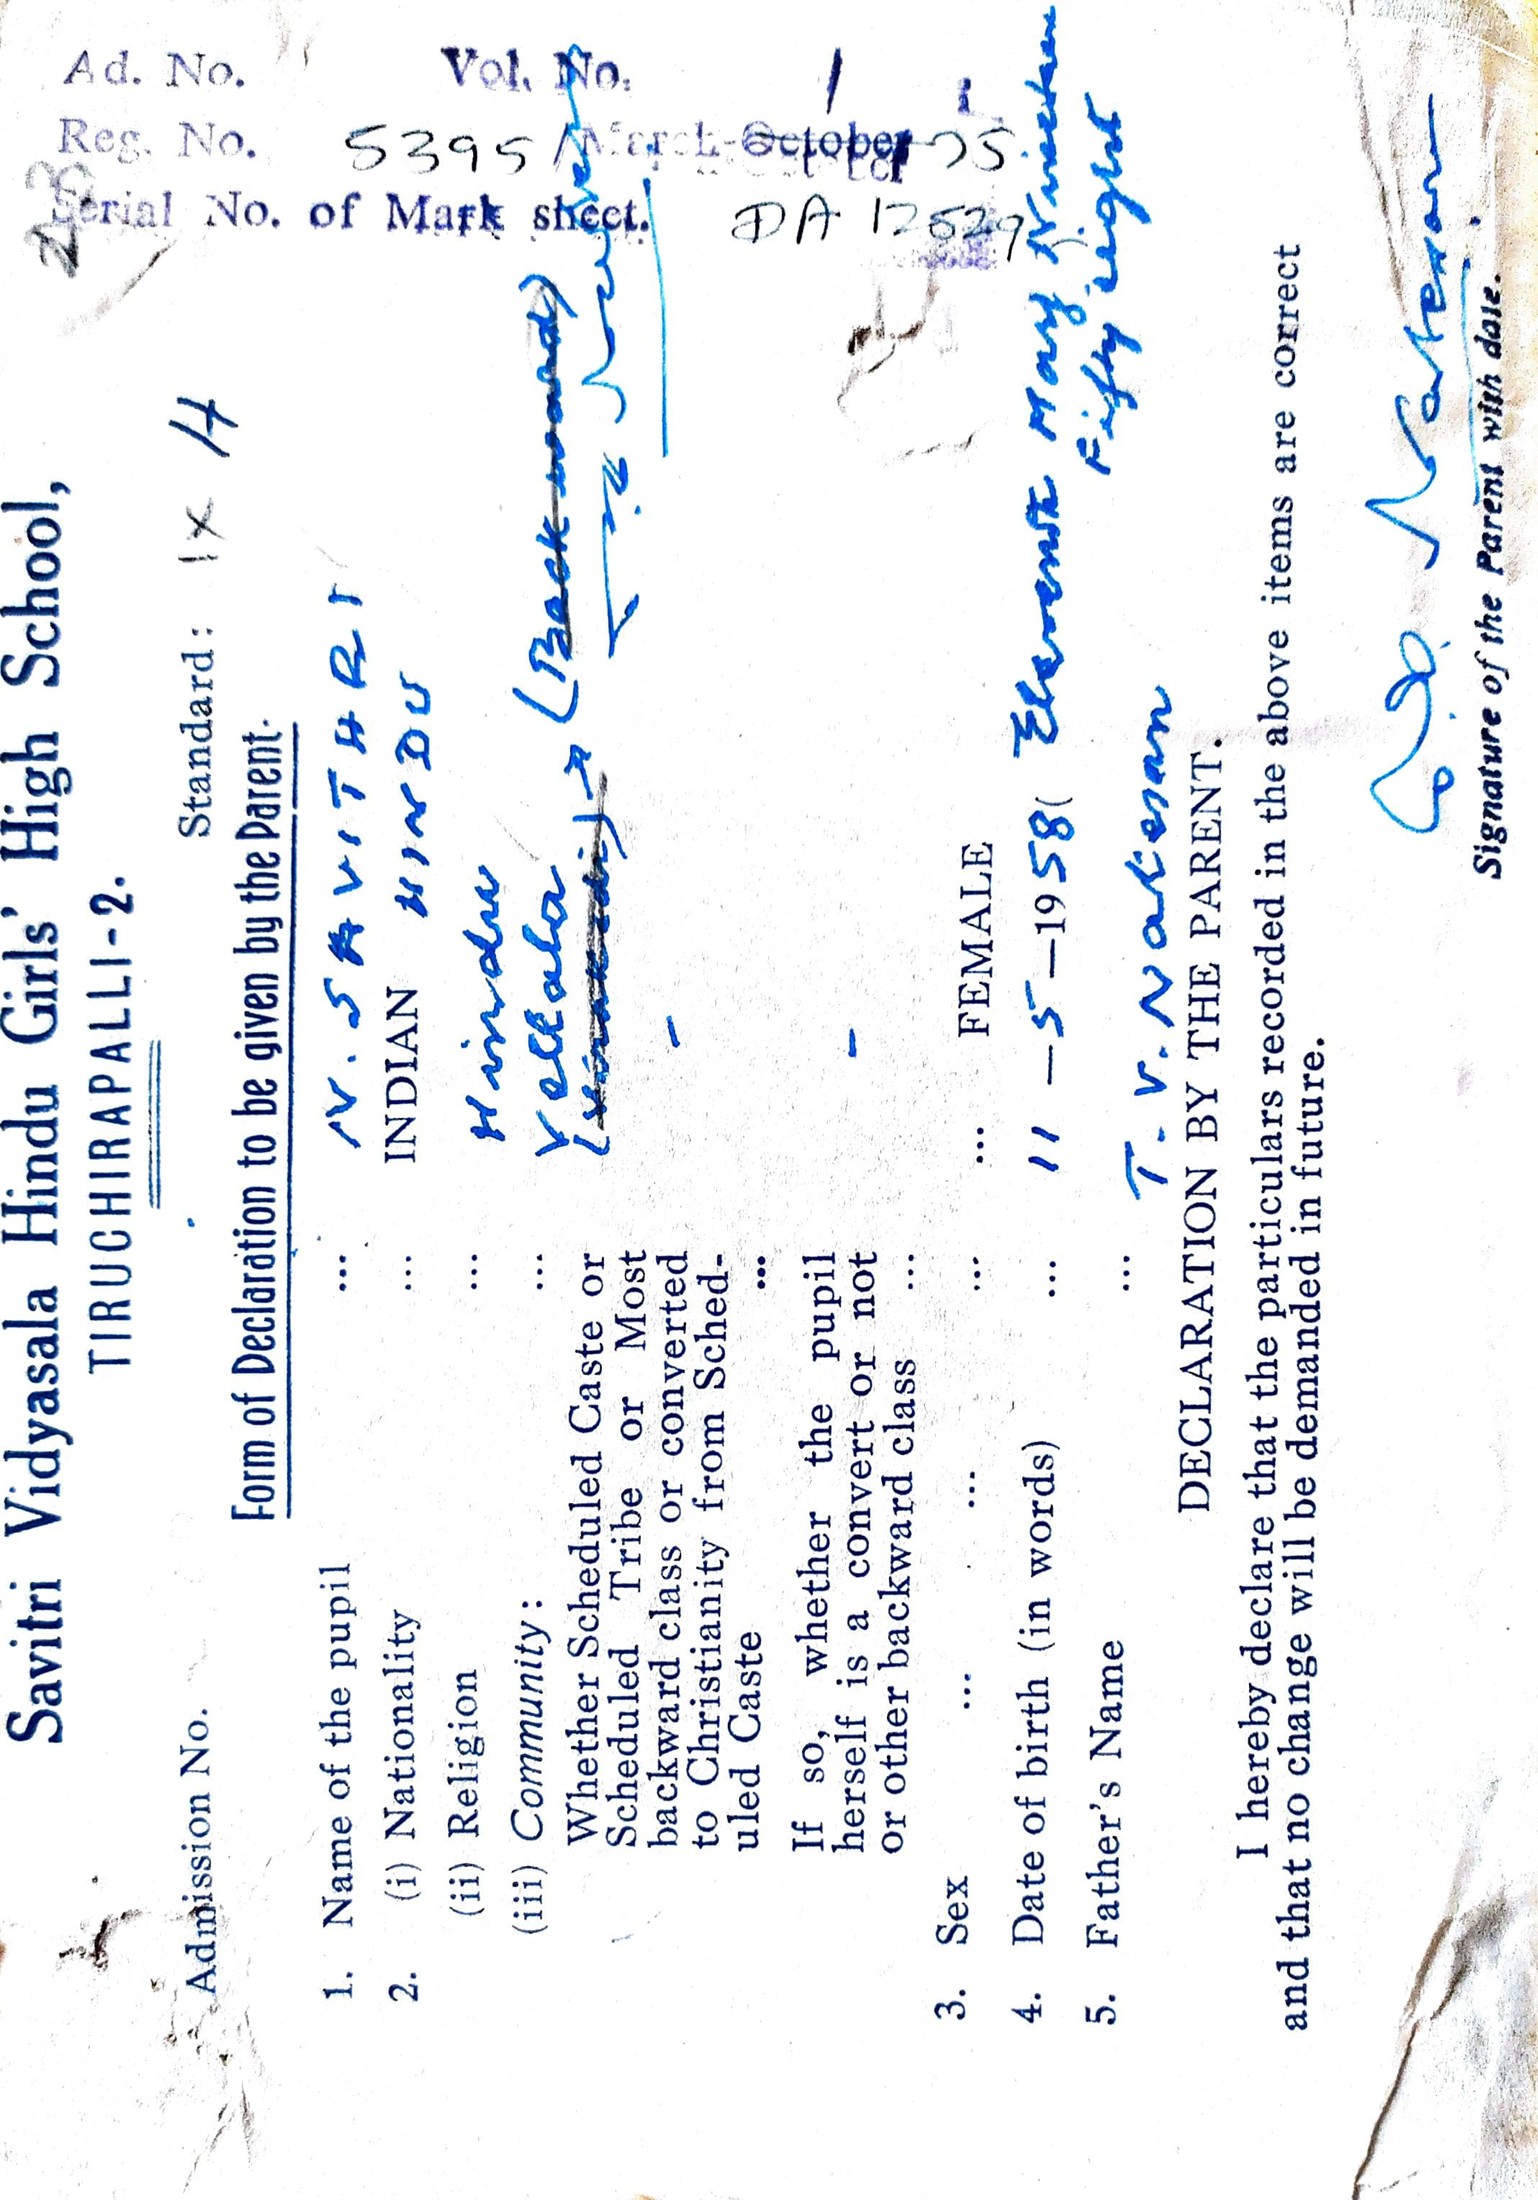 Savitri Vidyasala Hindu Girls' High School,
TIRUCHIRAPALLI-2.
Admission No. Standard: IX H
Form of Declaration to be given by the Parent.
1. Name of the pupil ... N. SAVITHRI
2. (i) Nationality ... INDIAN HINDU
(ii) Religion ... Hindu
(iii) Community: ... Vellala (Backward)
Whether Scheduled Caste or
Scheduled Tribe or Most
backward class or converted
to Christianity from Sched-
uled Caste ... -
If so, whether the pupil
herself is a convert or not
or other backward class ... -
3. Sex ... ... ... ... FEMALE
4. Date of birth (in words) ... 11-5-1958( Eleventh May Nineteen
Fifty eight
5. Father's Name ... T. V. Natesan
DECLARATION BY THE PARENT.
I hereby declare that the particulars recorded in the above items are correct
and that no change will be demanded in future.
Signature of the Parent with date.
Ad. No. Vol. No. 1
Reg. No. 5395 / March-October 75
Serial No. of Mark sheet. DA 12529